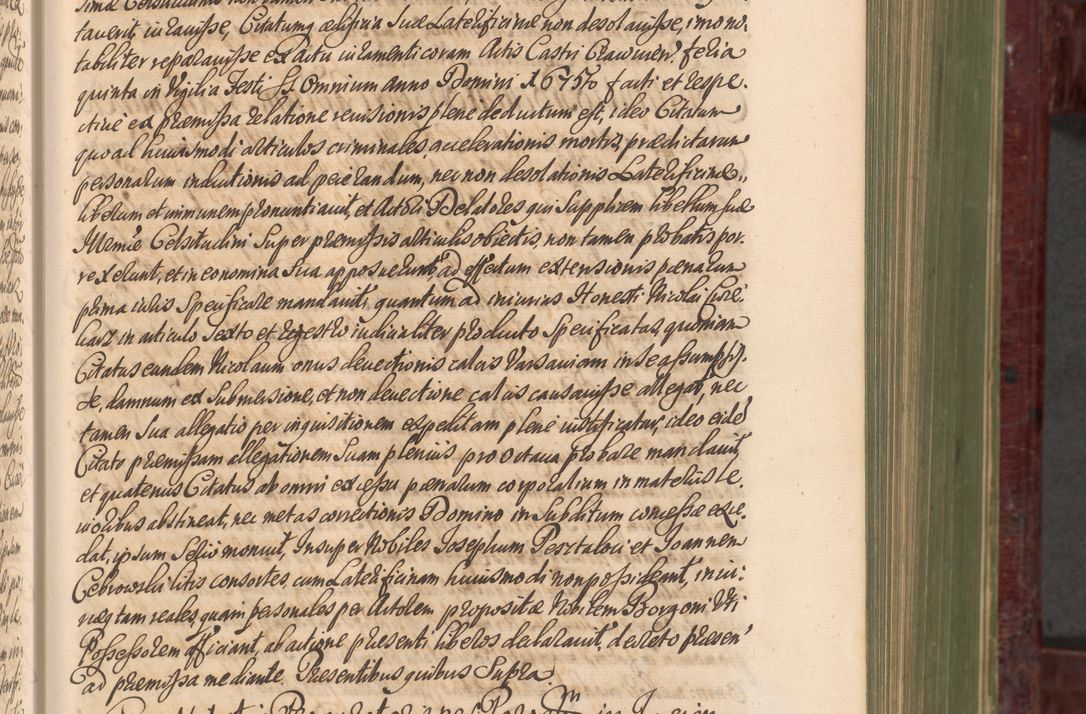 taverit, incavisse, Citatumq; ædificia suæ Laterificinæ non desolavisse, imo no,,
tabiliter reparavisse ex Actu in Camenticoram Actis Castri Cracovien: feria
quinta in Vigilia Festi SS. Omnium Anno Domini 1757o facti et respe,,
ctive ex præmissa relatione revisionis plene deductum est, ideo Citatum
quoad huiusmodi articulos criminales, accelerationis mortis, prædictarum
personarum inductionis ad peierandum, nec non desolationis Laterificinæ,,
liberum et immunem pronuntiavit, et Actori Delatores qui Supplicem libellum suæ
Illmæ Celsitudini Super præmissis articulis obiectis, non tamen probatis por,,
rexerunt, et in eo nomina Sua apposuerunt ad effectum extensionis pænarum
prima iuris Specificare mandavit, quantum ad iniurias Honesti Nicolai
in articulo Sexto et regestro iudicialiter producto Specificatas, quoniam
Citatus eundem Nicolaum onus devectionis calcis Varsaviam in se assumpsis,,
se, damnum ex Submersione, et non devectione calcis causavisse allegat, nec
tamen Sua allegatio per inquisitionem expeditam plene iustificatur, ideo eidem
Citato præmissam allegationem Suam plenius pro octava probare mandavit,
et quatenus Citatus ab omni excessu pænarum corporalium in materiis le,,
vioribus abstineat, nec metas correctionis Domino in Subditum concessæ exce,,
dat, ipsum Serio monuit, Insuper Nobiles Josephum Pesztaloci et Joannem
Cebrowski litis consortes, cum Laterificinam huiusmodi non possideant, iniu,,
riæq; tam reales, quam personales per Actorem propositæ Nobilem Borgoni uti
Possessorem afficiant, ab actione præsenti liberos declaravit, decreto præsen:
ad præmissa mediante. Præsentibus quibus Supra.